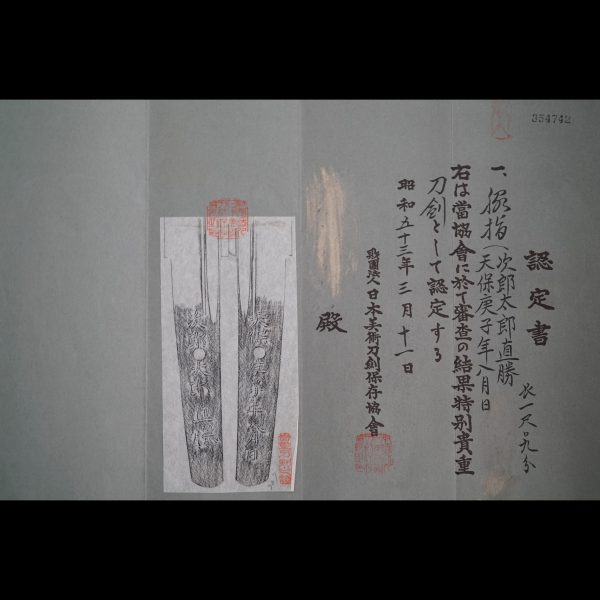 354742
認定書
一、脇指(次郎太郎直勝
(天保庚子年八月日
長一尺九分
右は當協會に於て審査の結果特別貴重
刀剣として認定する
昭和五十三年三月十一日
財團法人日本美術刀剣保存協會
殿